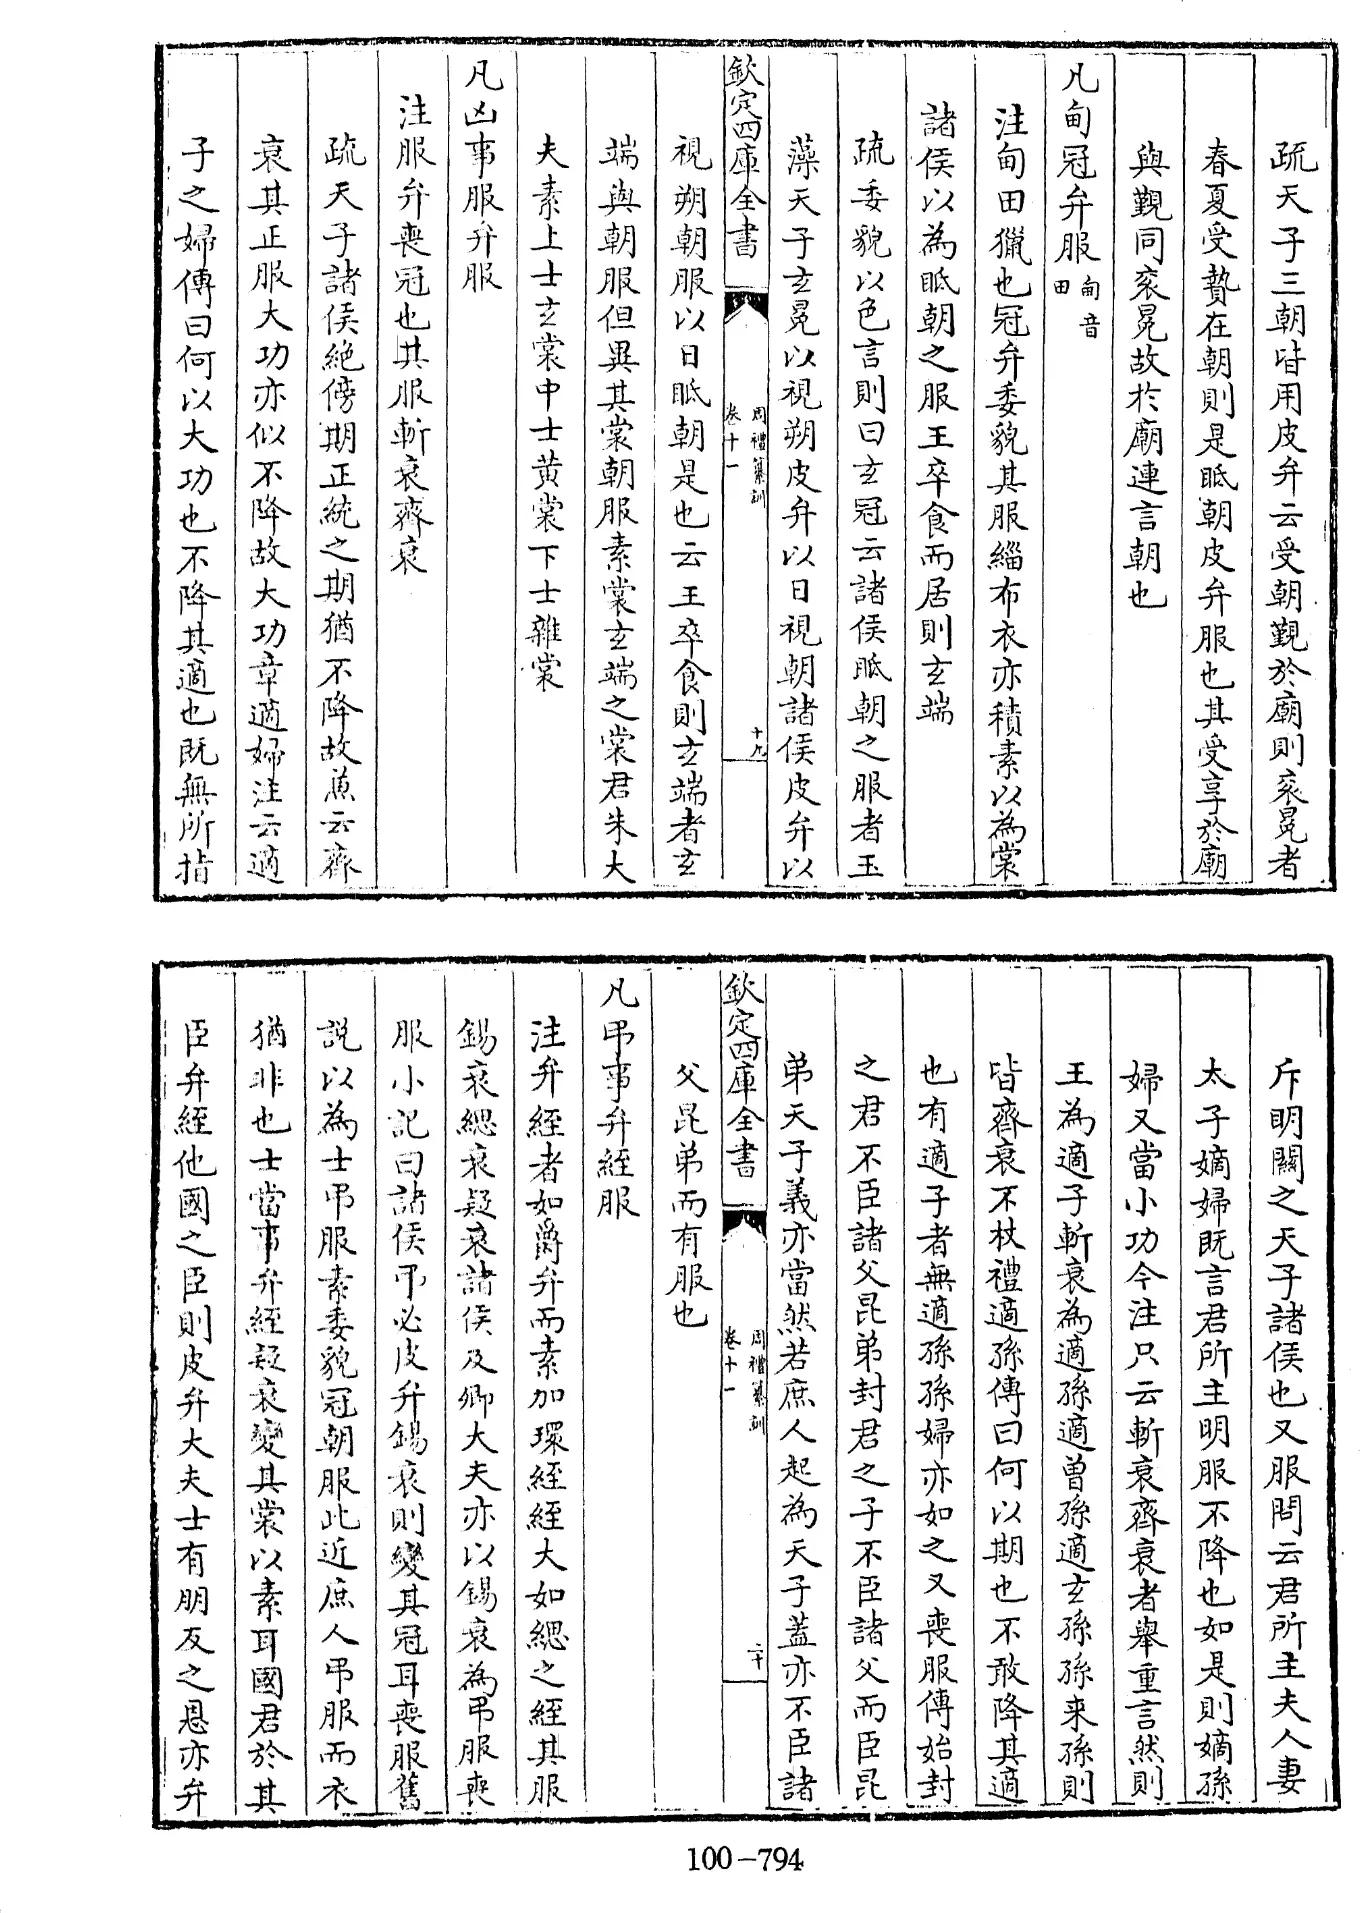 疏天子三朝皆用皮弁云受朝覲於廟則衮冕者
春夏受贄在朝則是眡朝皮弁服也其受享於廟
與覲同衮冕故於廟連言朝也
凡甸冠弁服甸音田
注甸田獵也冠弁委貌其服緇布衣亦積素以為裳
諸侯以為眡朝之服王卒食而居則玄端
疏委貌以色言則曰玄冠云諸侯眡朝之服者玉
藻天子玄冕以視朔皮弁以日視朝諸侯皮弁以
欽定四庫全書
周禮纂訓
卷十一
十九
視朔朝服以日眡朝是也云王卒食則玄端者玄
端與朝服但異其裳朝服素裳玄端之裳君朱大
夫素上士玄裳中士黃裳下士雜裳
凡凶事服弁服
注服弁喪冠也其服斬衰齊衰
疏天子諸侯絶傍期正統之期猶不降故兼云齊
衰其正服大功亦似不降故大功章適婦注云適
子之婦傳曰何以大功也不降其適也既無所指
斥明關之天子諸侯也又服問云君所主夫人妻
太子嫡婦既言君所主明服不降也如是則嫡孫
婦又當小功今注只云斬衰齊衰者舉重言然則
王為適子斬衰為適孫適曾孫適玄孫孫来孫則
皆齊衰不杖禮適孫傳曰何以期也不敢降其適
也有適子者無適孫孫婦亦如之又喪服傳始封
之君不臣諸父昆弟封君之子不臣諸父而臣昆
弟天子義亦當然若庶人起為天子蓋亦不臣諸
欽定四庫全書
周禮纂訓
卷十一
二十
父昆弟而有服也
凡弔事弁絰服
注弁絰者如爵弁而素加環絰絰大如緦之絰其服
錫衰緦衰疑衰諸侯及卿大夫亦以錫衰為弔服喪
服小記曰諸侯弔必皮弁錫衰則變其冠耳喪服舊
説以為士弔服素委貌冠朝服此近庶人弔服而衣
猶非也士當事弁絰疑衰變其裳以素耳國君於其
臣弁絰他國之臣則皮弁大夫士有朋友之恩亦弁
100-794